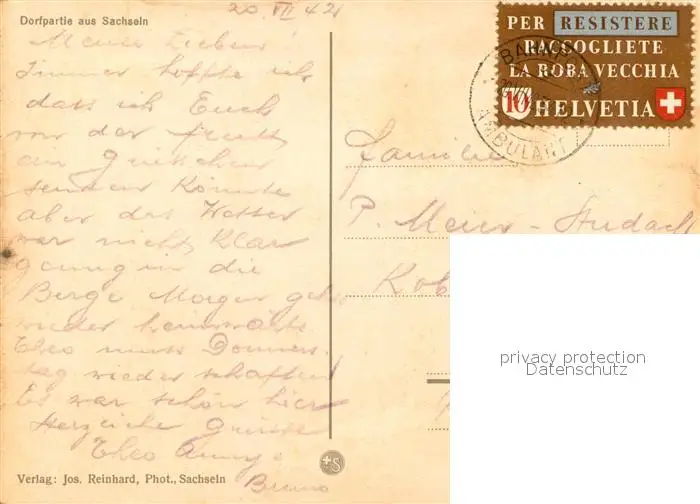 20. VII 42
Dorfpartie aus Sachseln
PER RESISTERE
RACCOGLIETE
LA ROBA VECCHIA
10 HELVETIA
AMBULANT
Meine Lieben
Immer hoffte ich
dass ich Euch
von der
ein Grüsschen
senden könnte
aber das Wetter
war nicht klar
genug in die
Berge Morgen geht's
wieder heimwärts
Theo muss Donners-
tag wieder schaffen
Es war schön hier
Herzliche Grüsse
Theo
Bruno
Familie
P. Meier-
privacy protection
Datenschutz
Verlag: Jos. Reinhard, Phot., Sachseln